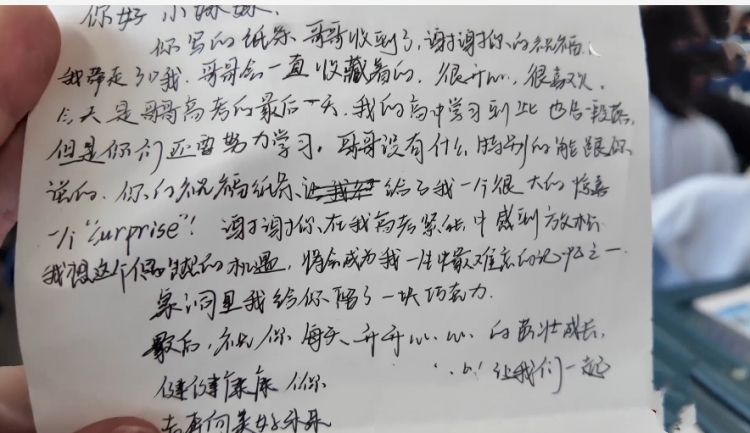 你好小妹妹,
你写的纸条哥哥收到了,谢谢你的祝福、
我带走了哦,哥哥会一直收藏着的,很开心,很喜欢.
今天是哥哥高考的最后一天,我的高中学习到此也告一段落,
但是你们还需努力学习.哥哥没有什么特别的能跟你
说的.你的祝福纸条给了我一个很大的惊喜
一个"surprise"!谢谢你、在我高考紧张中感到放松
我想这个偶然的机遇,将会成为我一生中最难忘的记忆之一.
桌洞里我给你留了一块巧克力.
最后,祝你每天开开心心的茁壮成长,
健健康康
让我们一起
去奔向美好未来